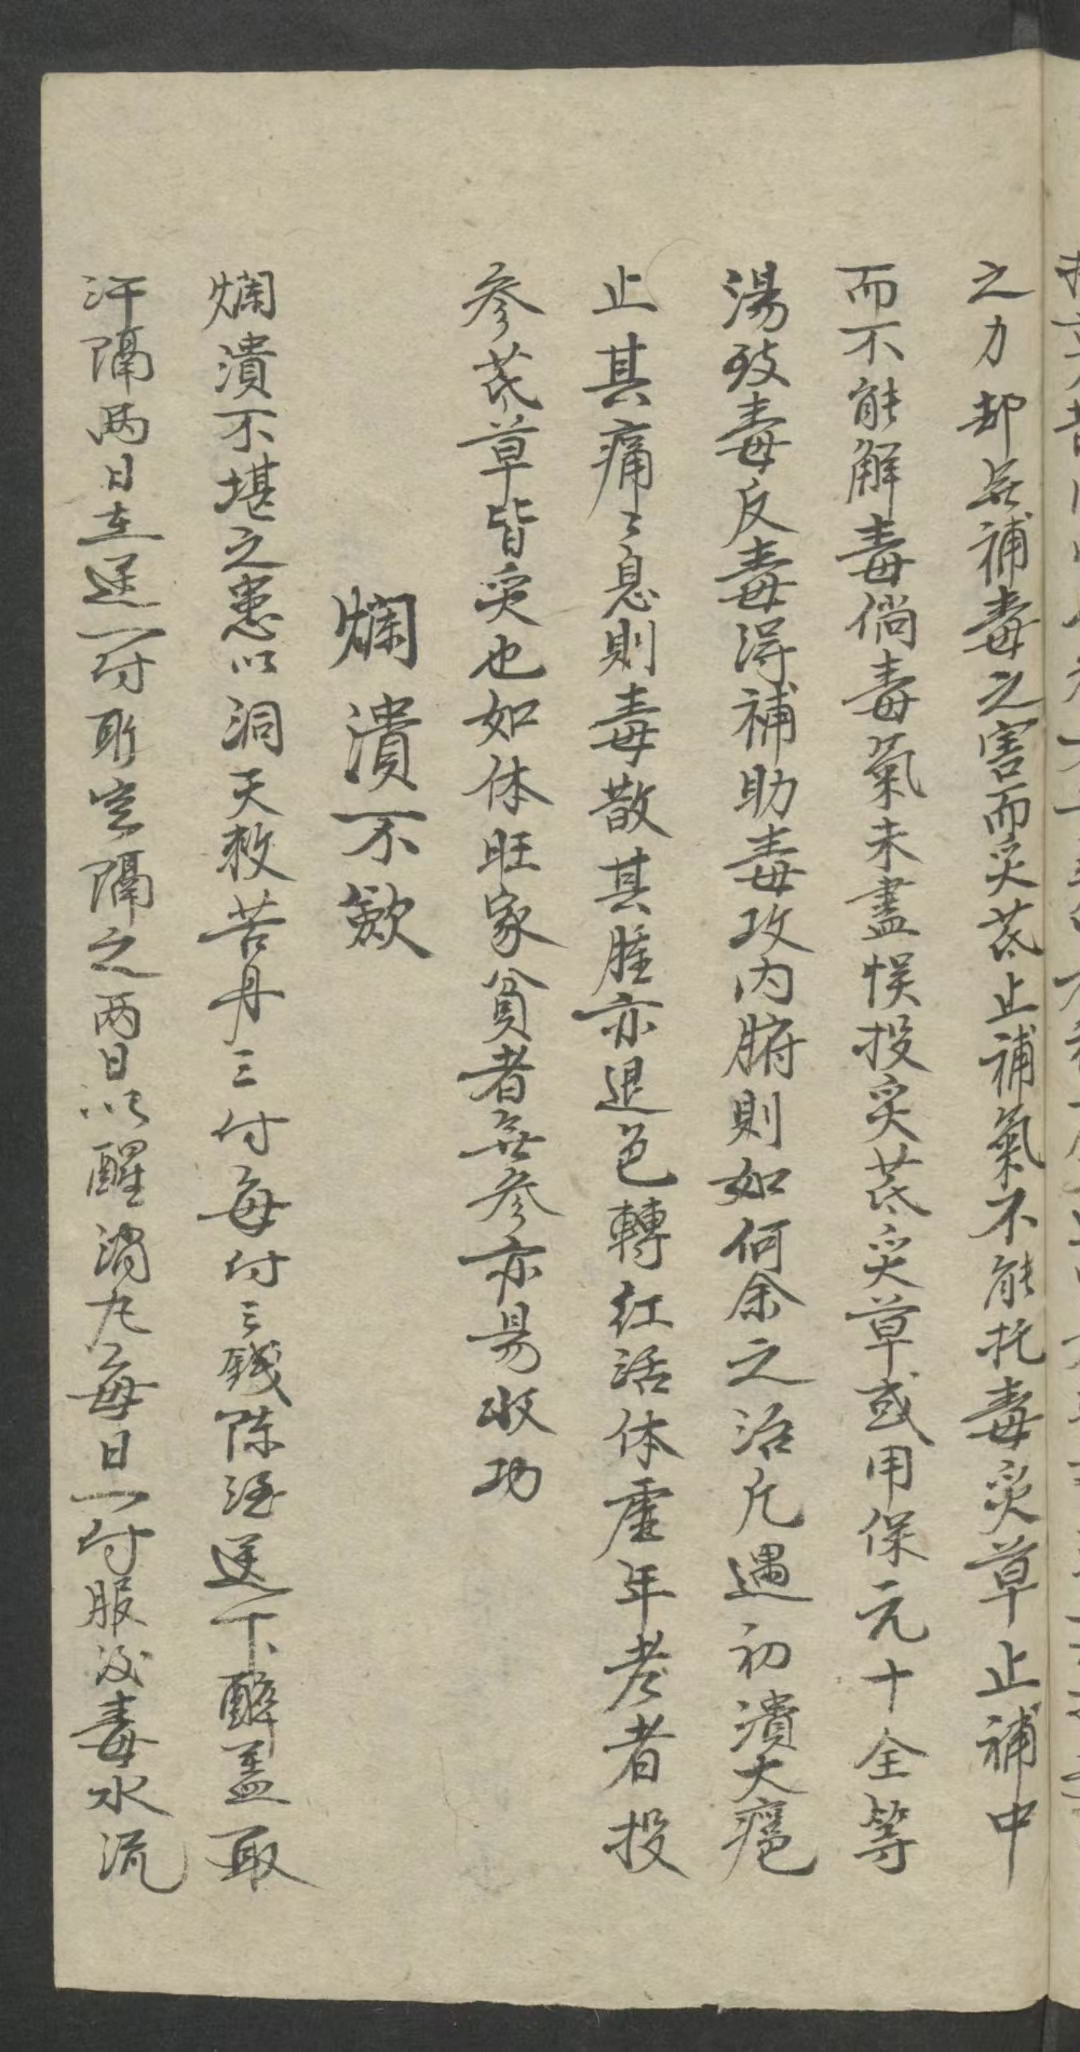 之力却無補毒之害而炙芪止補氣不能托毒炙草止補中
而不能解毒倘毒氣未盡悮投炙芪炙草或用保元十全等
湯致毒反毒得補助毒攻内腑則如何余之治凡遇初潰大瘡
止其痛〻息則毒散其腫亦退色轉紅活体虛年老者投
參芪草皆炙也如体旺家貧者無參亦易收功
爛潰不歛
爛潰不堪之患以洞天救苦丹三付每付三錢陈酒送下醉盖取
汗隔两日再送一付所空隔之两日以醒消丸每日一付服後毒水流